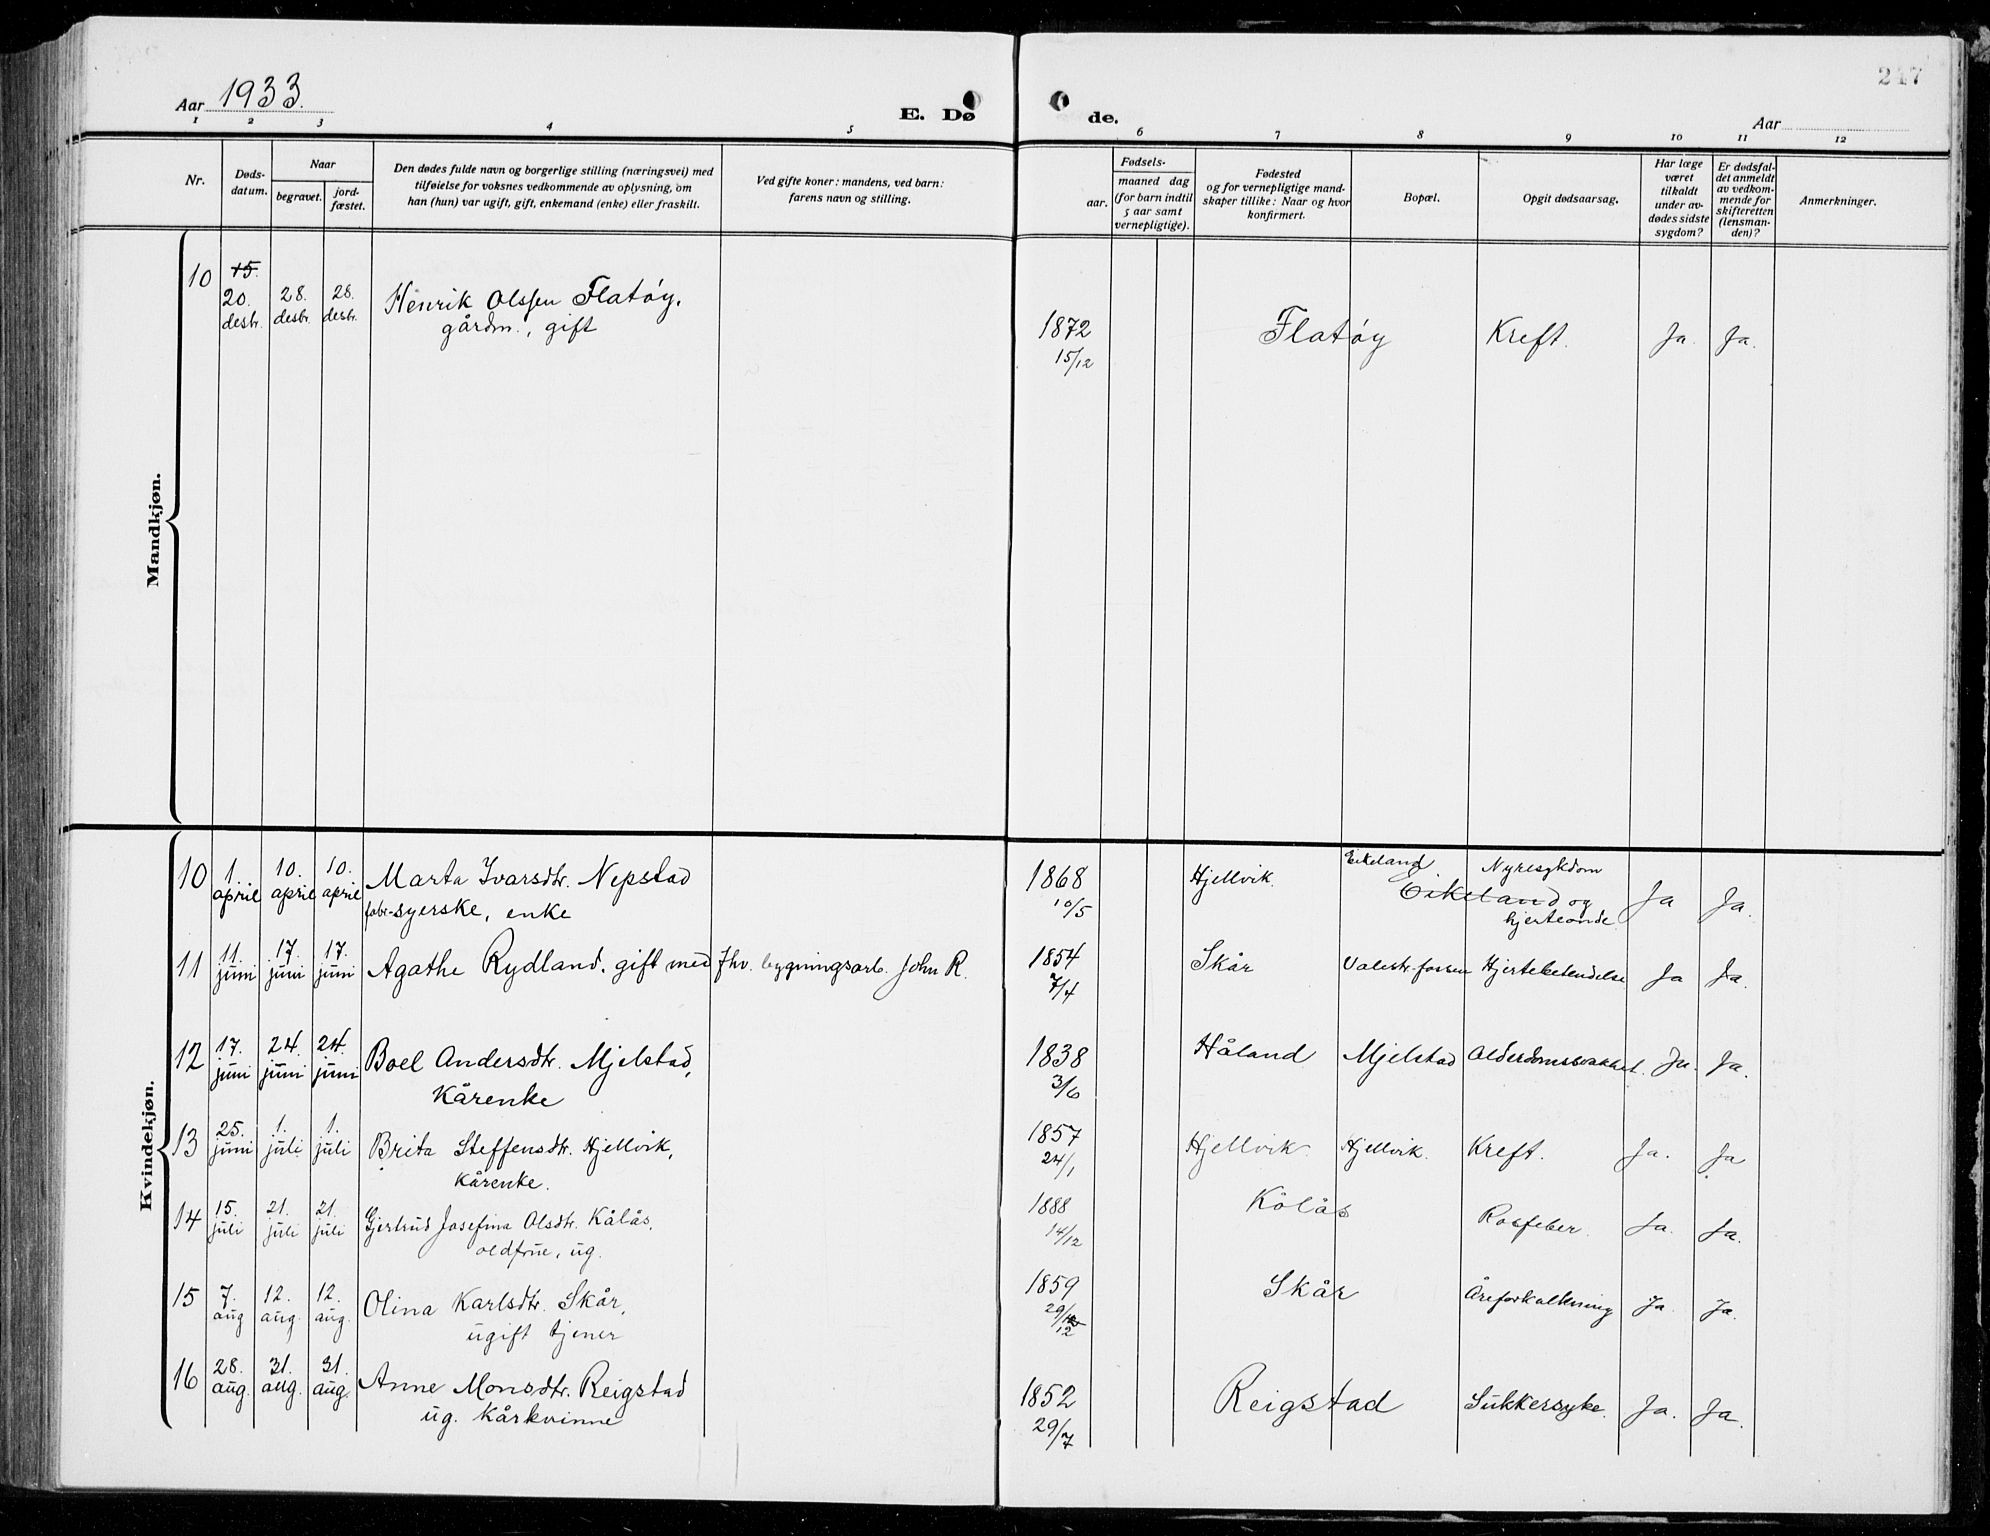 Aar 1933.
E. Døde.
247
Aar
1 2 3 4 5 6 7 8 9 10 11 12
Nr.
Døds-
datum.
Naar
begravet.
jord-
fæstet.
Den dødes fulde navn og borgerlige stilling (næringsvei) med
tilføielse for voksnes vedkommende av oplysning, om
han (hun) var ugift, gift, enkemand (enke) eller fraskilt.
Ved gifte koner: mandens, ved barn:
farens navn og stilling.
Fødsels-
aar.
maaned dag
(for barn indtil
5 aar samt
vernepligtige).
Fødested
og for vernepligtige mand-
skaper tillike: Naar og hvor
konfirmert.
Bopæl.
Opgit dødsaarsag.
Har læge
været
tilkaldt
under av-
dødes sidste
sygdom?
Er dødsfal-
det anmeldt
av vedkom-
mende for
skifteretten
(lensman-
den)?
Anmerkninger.
Mandkjøn.
10 15.
20. desbr. 28. desbr. 28. desbr. Henrik Olssen Flatøy,
gårdm., gift
1872
15/12
Flatøy Kreft. Ja. Ja.
Kvindekjøn.
10 1. april 10. april 10. april Marta Ivarsdtr. Nepstad
fabr-syerske, enke
1868
10/5
Hjellvik. Eikeland Eikeland Nyresykdom
og
hjerteonde Ja Ja.
11 11. juni 17. juni 17. juni Agathe Rydland. gift med fhv. bygningsarb. John R.
1854
7/4
Skår Valestr. fossen Hjertebetendelse Ja Ja.
12 17. juni 24. juni 24. juni Boel Andersdtr. Mjelstad,
Kårenke
1838
3/6
Håland Mjelstad Alderdomssvakhet. Ja. Ja.
13 25. juni 1. juli 1. juli Brita Steffensdtr. Hjellvik,
Kårenke.
1857
24/1
Hjellvik. Hjellvik. Kreft. Ja. Ja
14 15. juli 21. juli 21. juli Gjertrud Josefina Olsdtr. Kålås,
oldfrue, ug.
1888
14/12
Kålås Rosfeber. Ja. Ja.
15 7. aug 12. aug. 12. aug. Olina Karlsdtr. Skår,
ugift tjener
1859
29/12
Skår Åreforkalkning Ja. Ja.
16 28. aug. 31. aug. 31. aug. Anne Monsdtr. Reigstad
ug. Kårkvinne
1852
29/7
Reigstad Sukkersyke. Ja. Ja.